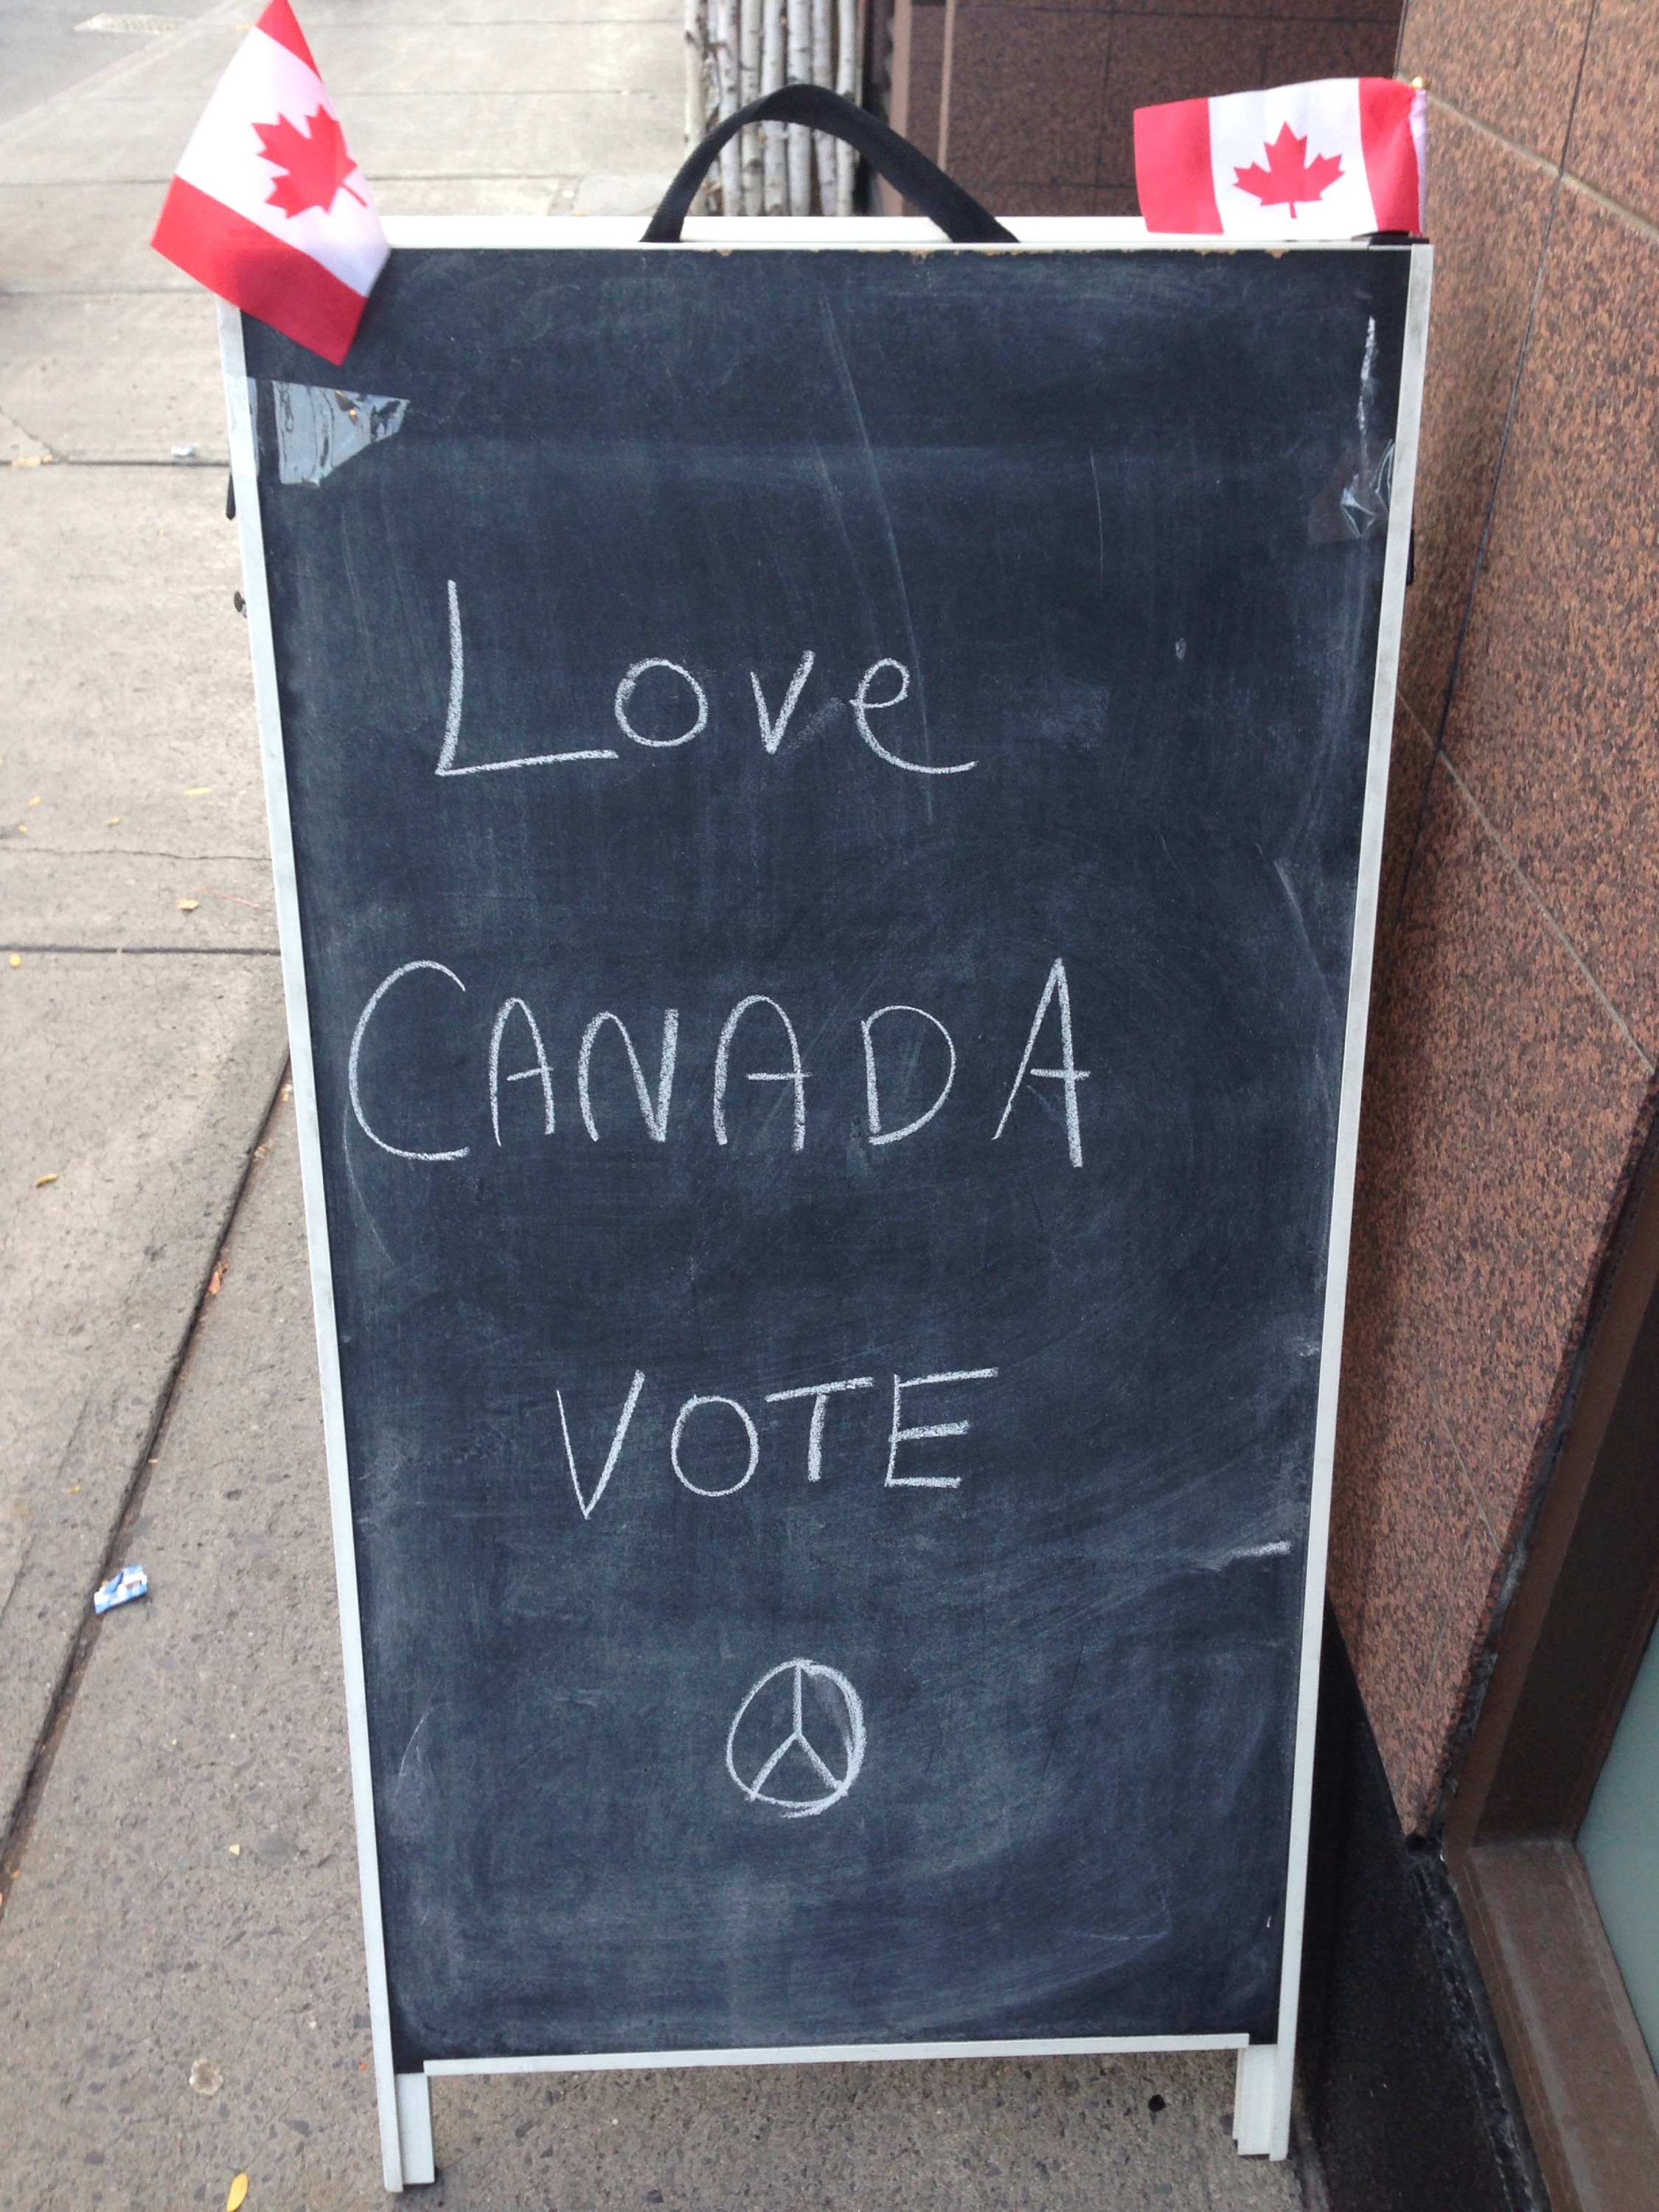 Love
CANADA
VOTE